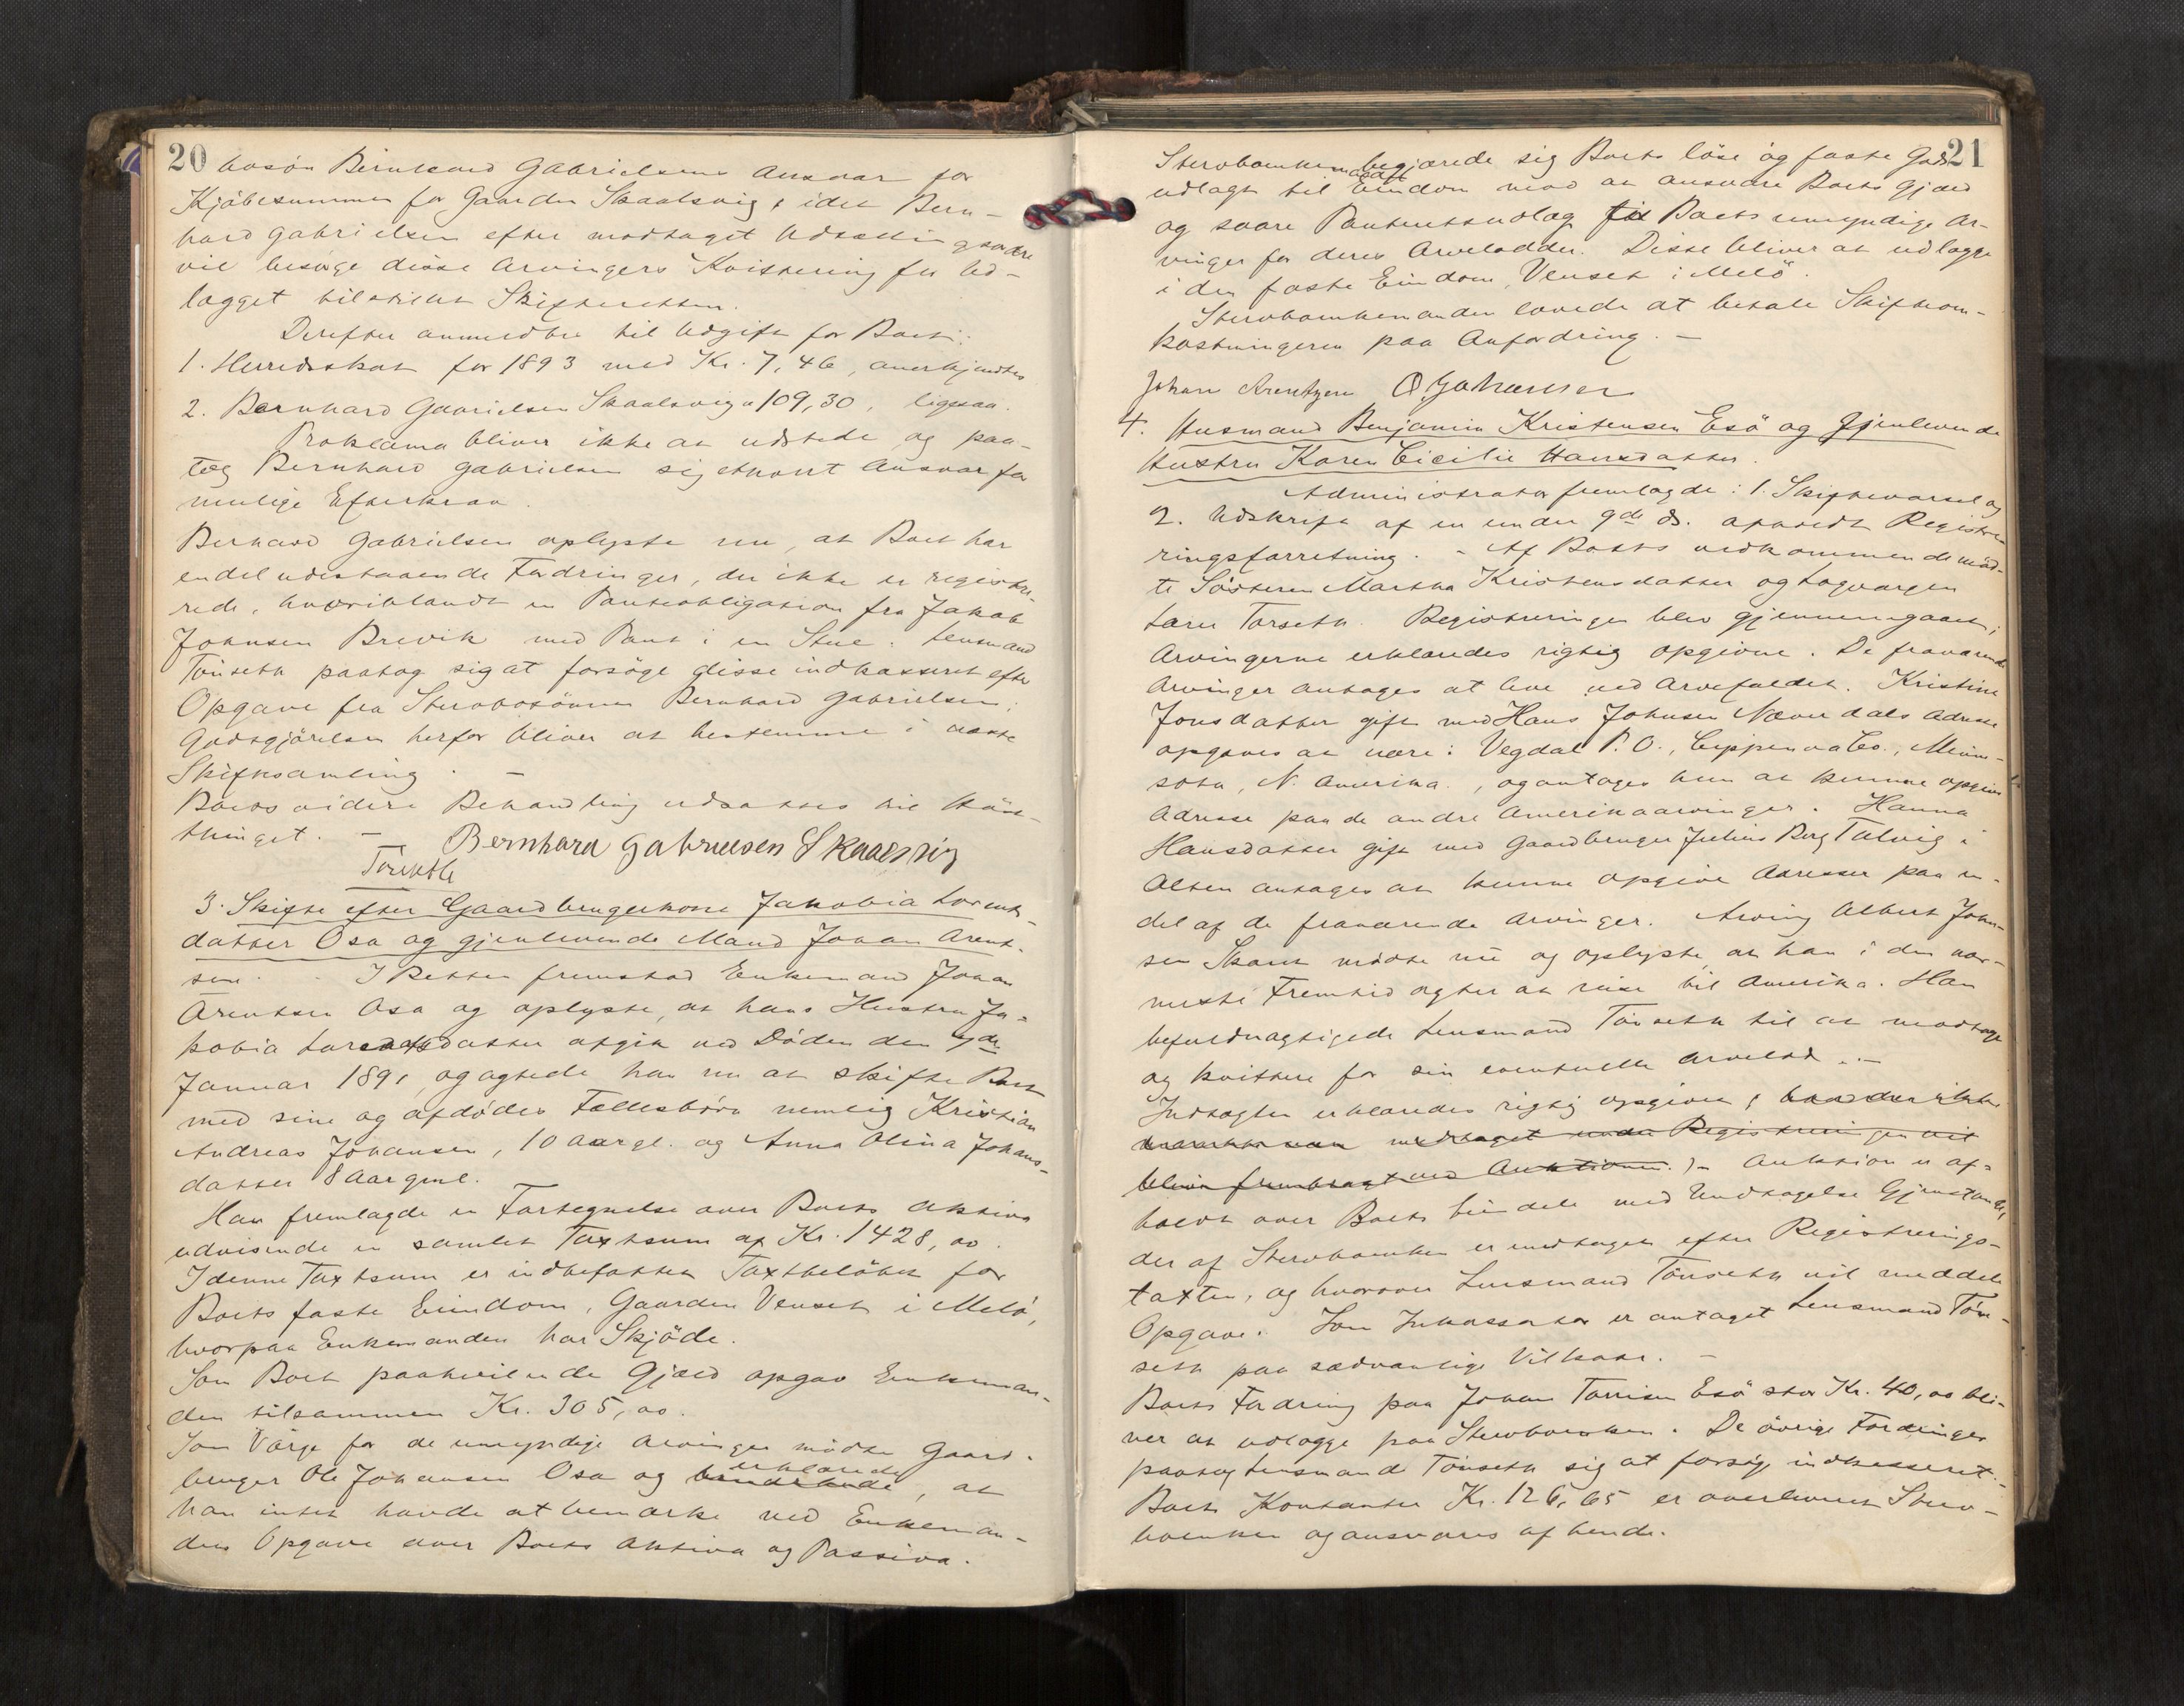 20
bosön Bernhard Gabrielsens Ansvar for
Kjöbesummen for Gaarden Skaalsvig, idet Bern-
hard Gabrielsen efter modtaget Udsættingsordre
vil besörge disse Arvingers Kvittering for Ud-
lægget tilstillet Skifteretten.
Derefter anmeldtes til Udgift for Boet:
1. Herredsskat for 1893 med Kr. 7,46, anerkjendtes
2. Bernhard Gabrielsen Skaalsvig " 109,30, ligesaa.
Proklama bliver ikke at udstede og paa-
tog Bernhard Gabrielsen sig ethvert Ansvar for
mulige Efterkrav.
Bernhard Gabrielsen oplyste nu, at Boet har
endel udestaaende Fordringer, der ikke er registre-
rede, hvoriblandt en Panteobligation fra Jakob
Johnsen Brevik med Pant i en Stue. Lensmand
Tönseth paatog sig at forsöge disse indkasseret efter
Opgave fra Stervbosönnen Bernhard Gabrielsen;
Godtgjörelsen herfor bliver at bestemme i næste
Skiftesamling. –
Boets videre Behandling udsattes til Höst-
thinget. –
Bernhard Gabrielsen Skaalsvig
Tönseth
3. Skifte efter Gaardbrugerkone Jakobia Lorents-
datter Osa og gjenlevende Mand Johan Arent-
sen. I Retten fremstod Enkemand Johan
Arentsen Osa og oplyste, at hans Hustru Ja-
kobia Lorentsdatter afgik ved Döden den 7de
Januar 1891, og agtede han nu at skifte Boet
med sine og afdödes Fællesbörn nemlig Kristian
Andreas Johansen, 10 Aar gl. og Anna Olina Johans-
datter 8 Aar gml.
Han fremlagde en Fortegnelse over Boets Aktiva
udvisende en samlet Taxtsum af Kr. 1428,00.
I denne Taxtsum er indbefattet Taxtbelöbet for
Boets faste Eiendom, Gaarden Venset i Melö,
hvorpaa Enkemanden har Skjöde.
Som Boet paahvilende Gjæld opgav Enkeman-
den tilsammen Kr. 305,00.
Som Værge for de umyndige Arvinger mödte Gaard-
bruger Ole Johansen Osa og erklærede, at
han intet havde at bemærke ved Enkeman-
dens Opgave over Boets Aktiva og Passiva.
21
Stervboenkemanden begjærede sig Boets löse og faste Gods
udlagt til Eiendom mod at ansvare Boets Gjæld
og svare Panteretsudlæg til Boets umyndige Ar-
vinger for deres Arvelodder. Disse bliver at udlægge
i den faste Eiendom, Venset i Melö.
Stervboenkemanden lovede at betale Skifteom-
kostningerne paa Anfordring. –
Johan Arentzen O. Johansen
4. Husmand Benjamin Kristensen Esö og Gjenlevende
Hustru Karen Cicilie Hansdatter.
Administrator fremlagde: 1. Skiftevarsel og
2. Udskrift af en under 9de ds. afholdt Registre-
ringsforretning. – Af Boets vedkommende möd-
te Sösteren Martha Kristensdatter og Lagværgen
Registreringen blev gjennemgaaet;
Arvingerne erklæredes rigtig opgivne. De fraværende
Arvinger antages at leve ved Arvefaldet. Kristine
Jonsdatter gift med Hans Johnsen Næverdals Adresse
opgaves at være: Vegdal P.O., Cippewa Co., Minne-
sota, N. Amerika, og antages hun at kunne opgive
Adresse paa de andre Amerikaarvinger. Hanna
Hansdatter gift med Gaardbruger Julius Berg Talvig i
Alten antages at kunne opgive Adresser paa en-
del af de fraværende Arvinger. Arving Albert John-
sen mödte nu og oplyste, at han i den nær-
meste Fremtid agter at reise til Amerika. Han
befuldmægtigede Lensmand Tönseth til at modtage
og kvittere for sin eventuelle Arvelod. –
Indtægten erklæredes rigtig opgiven, hvad der ikke
medtaget under Registreringen vil
blive frembragt ved Auktionen. – Auktion er af-
holdt over Boets Eiendele med Undtagelse Gjenstande,
der af Stervboenken er modtaget efter Registrerings-
taxten, og hvorover Lensmand Tönseth vil meddele
Opgave. Som Inkassator er antaget Lensmand Tön-
seth paa sædvanlige Vilkaar. –
Boets Fordring paa Johan Torrisen Esö stor Kr. 40,00 bli-
ver at udlægge paa Stervboenken. De övrige Fordringer
paatog Lensmand Tönseth sig at forsöge indkasseret.
Boets Kontanter Kr. 126,65 er overleveret Sterv-
boenken og ansvares af hende.